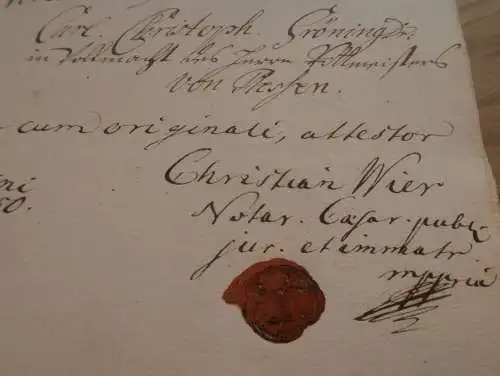 Carl Christoph Gröning Dr.
in Vollmacht des Herrn Rittmeisters
von Plessen.
cum originali, attestor
Christian Wier
Notar. Cæsar. publ.
jur. et immatr
mppria